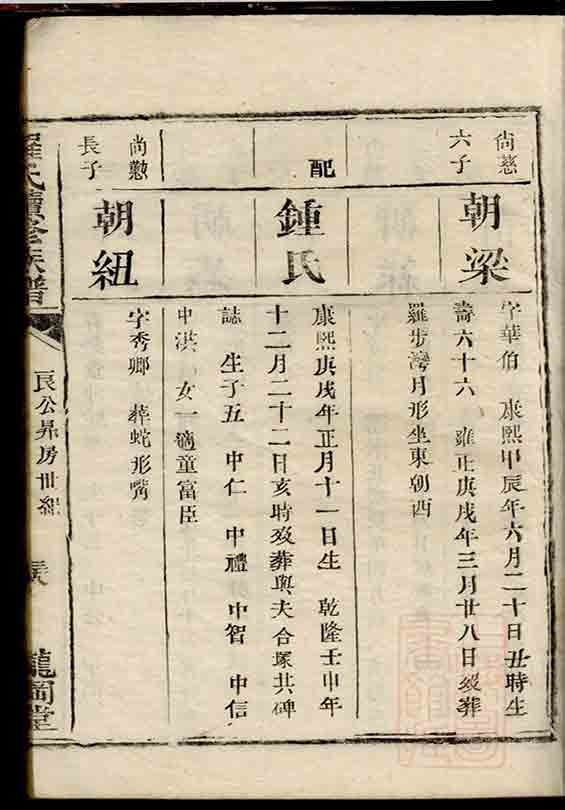 尚慈
六子
朝梁
字華伯 康熙甲辰年六月二十日丑時生
壽六十六 雍正庚戌年三月廿八日歿葬
羅步灣月形坐東朝西
配
鍾氏
康熙庚戌年正月十一日生 乾隆壬申年
十二月二十二日亥時歿葬與夫合塚共碑
誌 生子五 中仁 中禮 中智 中信
中洪 女一適童富臣
尚懃
長子
朝紐
字秀卿 葬蛇形嘴
羅氏續修族譜
良公昇房世紀
龍岡堂